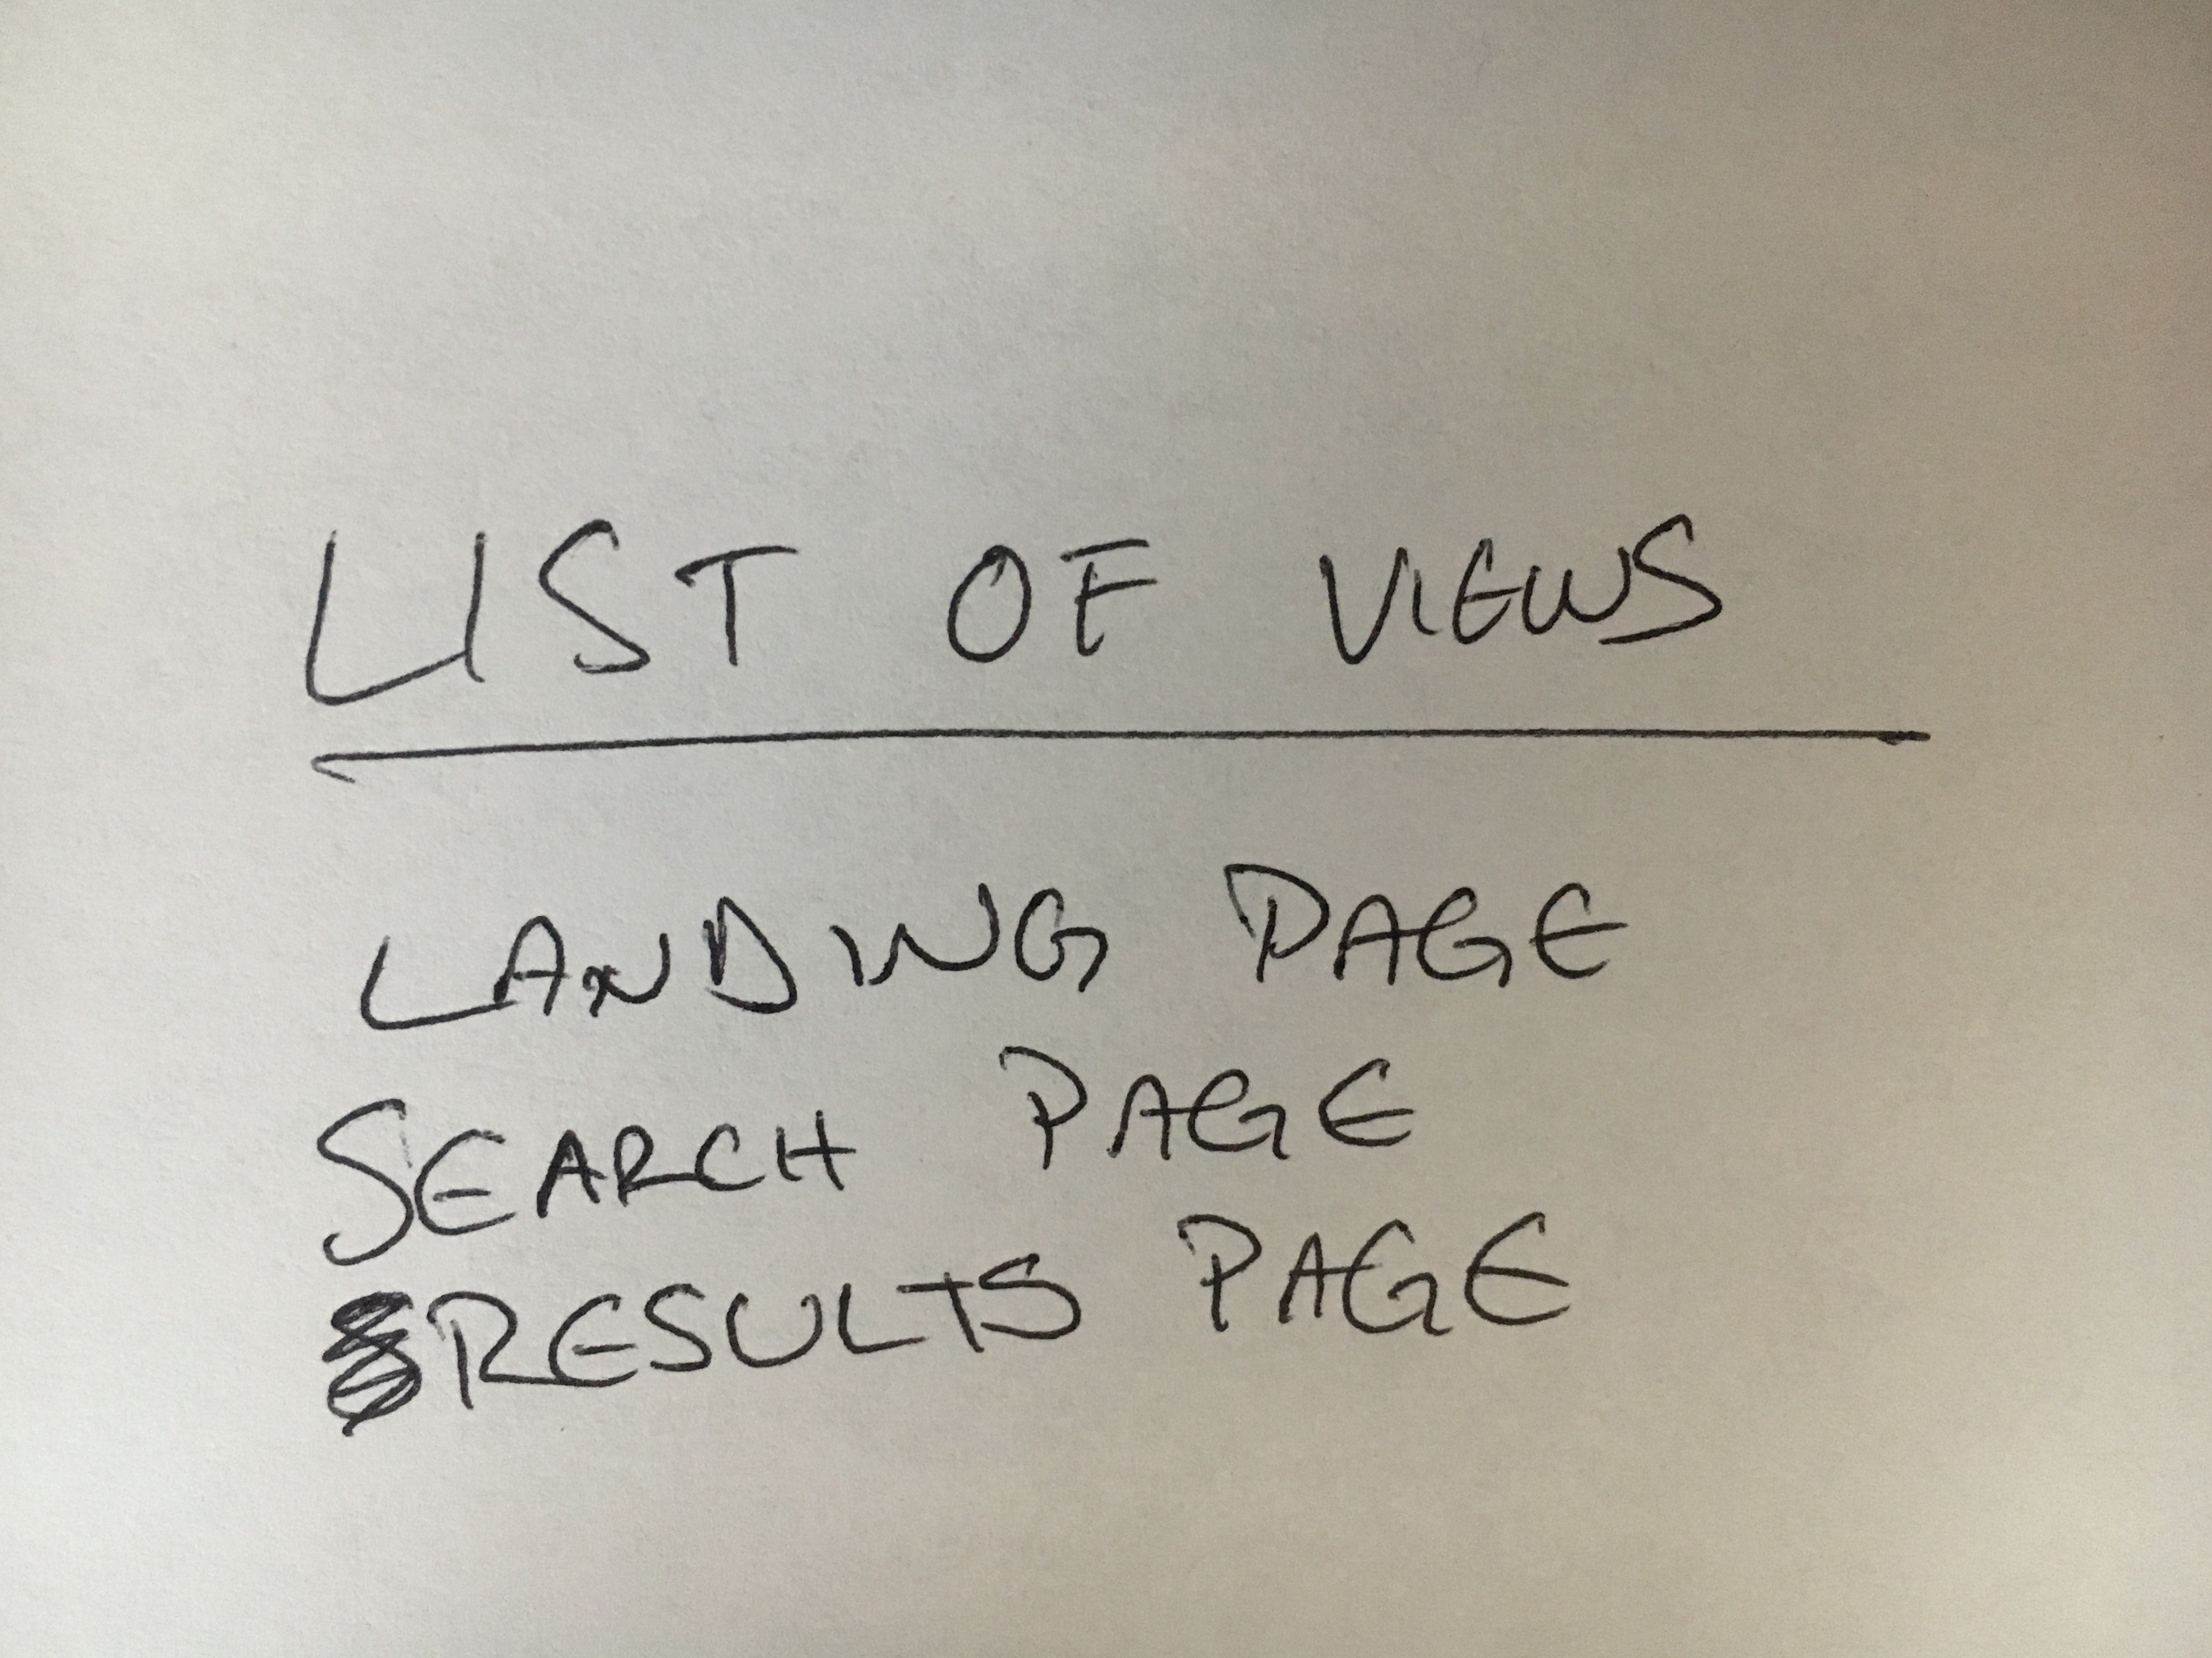 LIST OF VIEWS
LANDING PAGE
SEARCH PAGE
RESULTS PAGE